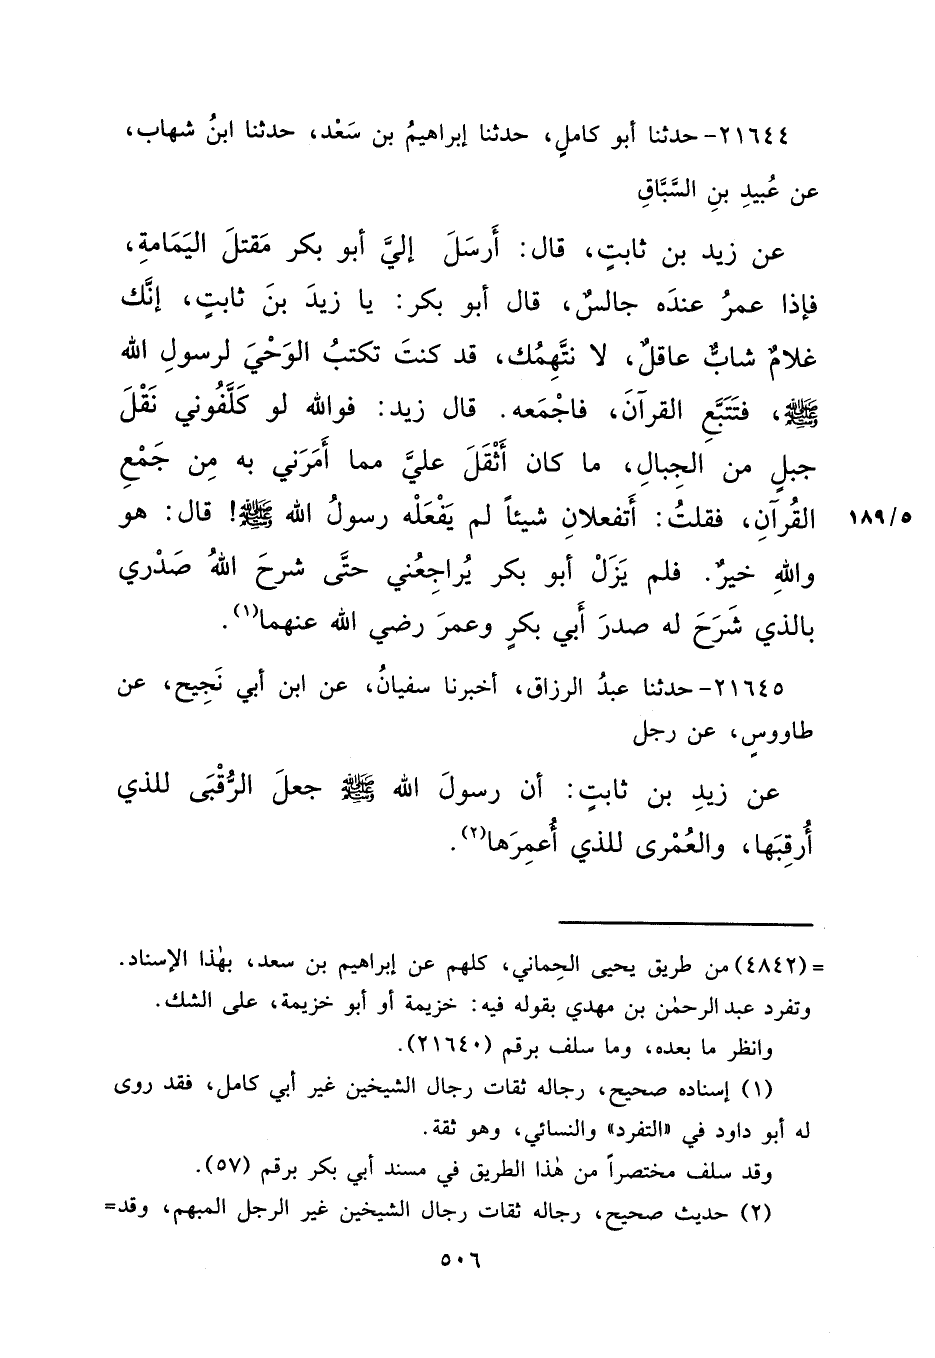 ٢١٦٤٤- حدثنا أبو كاملٍ، حدثنا إبراهيمُ بن سَعْد، حدثنا ابنُ شهاب،
عن عُبيدِ بنِ السَّبَّاقِ
عن زيد بن ثابتٍ، قال: أَرسَلَ إليَّ أبو بكر مَقتلَ اليَمَامةِ،
فإذا عمرُ عندَه جالسٌ، قال أبو بكر: يا زيدَ بنَ ثابتٍ، إنَّك
غلامٌ شابٌّ عاقلٌ، لا نتَّهِمُك، قد كنتَ تكتبُ الوَحْيَ لرسولِ الله
ﷺ، فتَتَبَّعِ القرآنَ، فاجْمَعه. قال زيد: فوالله لو كَلَّفُوني نَقْلَ
جبلٍ من الجِبالِ، ما كان أَثْقَلَ عليَّ مما أَمَرَني به مِن جَمْعِ
القُرآنِ، فقلتُ: أَتفعلانِ شيئاً لم يَفْعَلْه رسولُ الله ﷺ! قال: هو
١٨٩/٥
واللهِ خيرٌ. فلم يَزَلْ أبو بكر يُراجِعُني حتَّى شرحَ اللهُ صَدْري
بالذي شَرَحَ له صدرَ أَبي بكرٍ وعمرَ رضي الله عنهما(١).
٢١٦٤٥- حدثنا عبدُ الرزاق، أخبرنا سفيانُ، عن ابن أبي نَجِيح، عن
طاووسٍ، عن رجل
عن زيدِ بن ثابتٍ: أن رسولَ الله ﷺ جعلَ الرُّقْبَى للذي
أُرقِبَها، والعُمْرى للذي أُعمِرَها(٢).
= (٤٨٤٢) من طريق يحيى الحِماني، كلهم عن إبراهيم بن سعد، بهٰذا الإسناد.
وتفرد عبد الرحمٰن بن مهدي بقوله فيه: خزيمة أو أبو خزيمة، على الشك.
وانظر ما بعده، وما سلف برقم (٢١٦٤٠).
(١) إسناده صحيح، رجاله ثقات رجال الشيخين غير أبي كامل، فقد روى
له أبو داود في «التفرد» والنسائي، وهو ثقة.
وقد سلف مختصراً من هٰذا الطريق في مسند أبي بكر برقم (٥٧).
(٢) حديث صحيح، رجاله ثقات رجال الشيخين غير الرجل المبهم، وقد=
٥٠٦